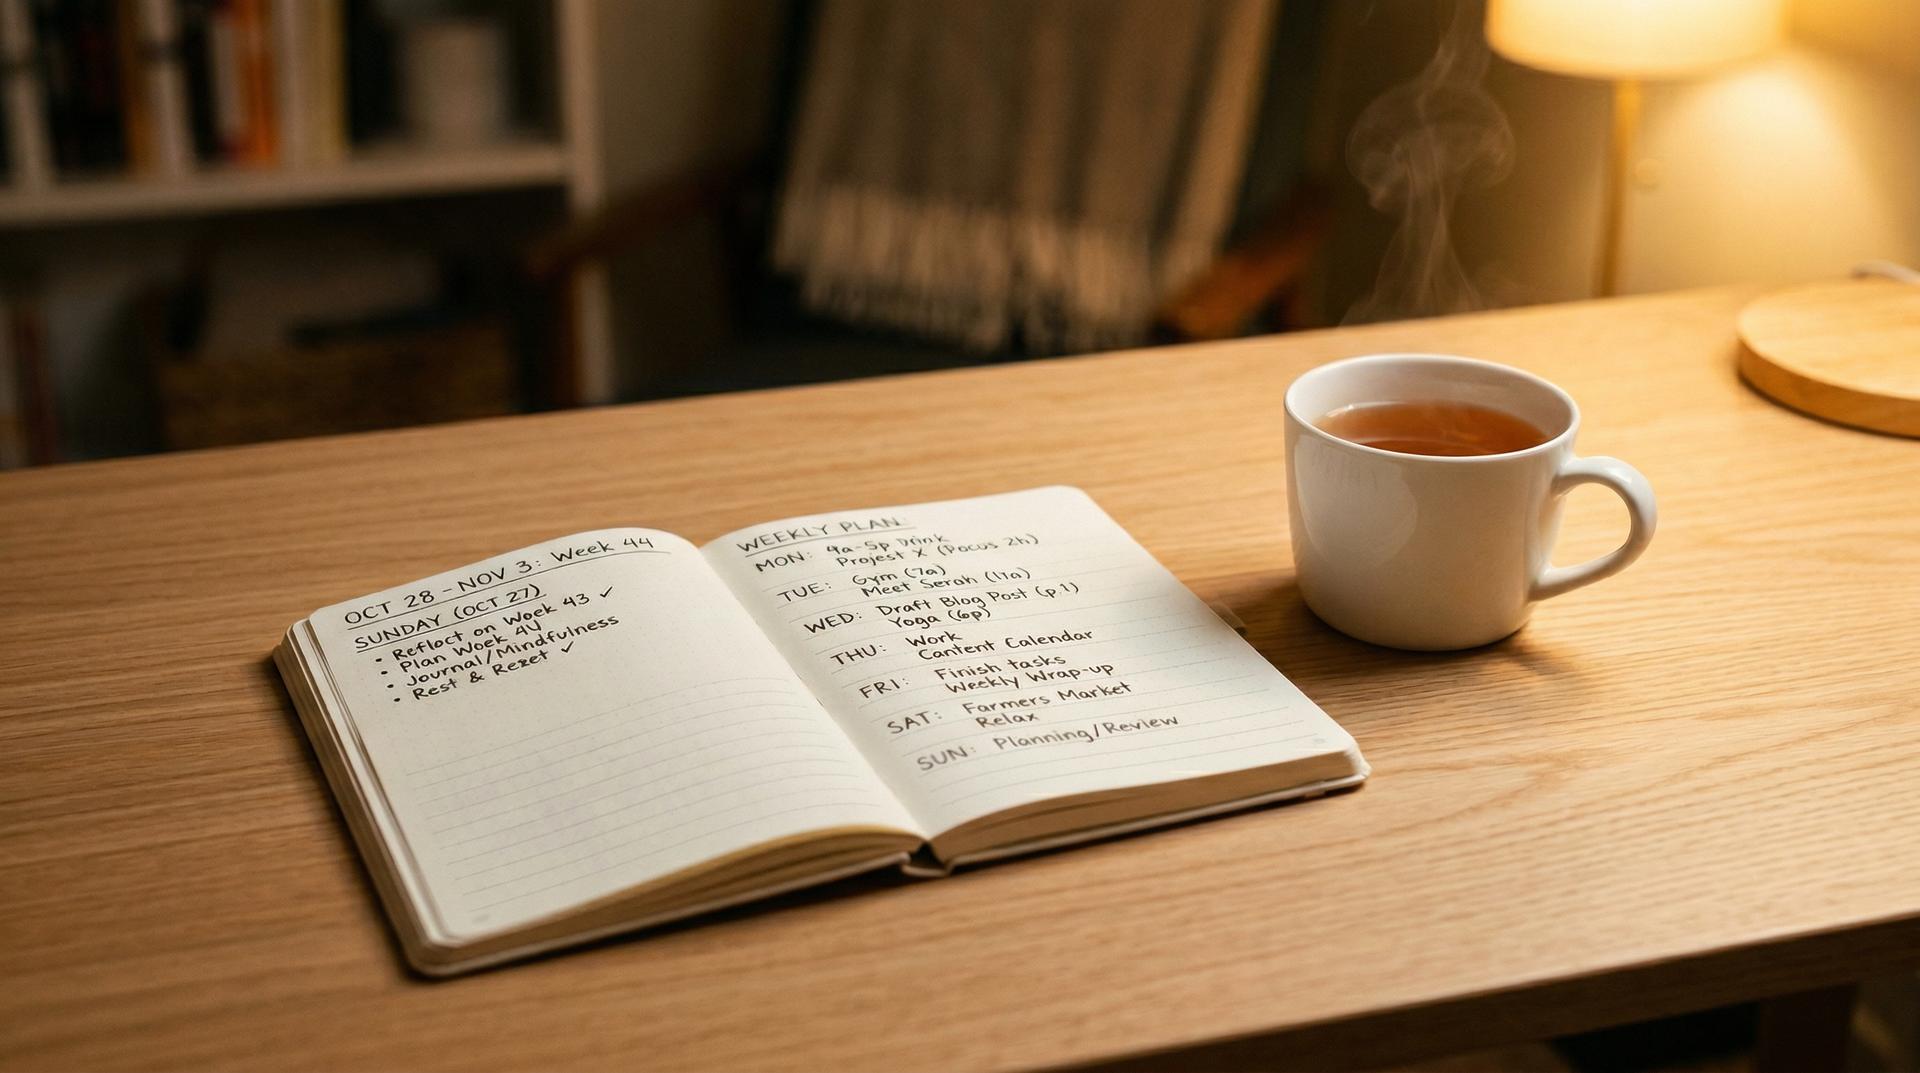 OCT 28 - NOV 3: Week 44
SUNDAY (OCT 27)
• Refloct on Week 43 ✓
• Plan Woek 4U
• Journal/Mindfulness
• Rest & Reset ✓
WEEKLY PLAN:
MON: 9a-5p Drink
Projest X (Pocus 2h)
TUE: Gym (7a)
Meet Serah (11a)
WED: Draft Blog Post (p.1)
Yoga (6p)
THU: Work
Cantent Calendar
FRI: Finish tasks
Weekly Wrap-up
SAT: Farmers Market
Relax
SUN: Planning/Review